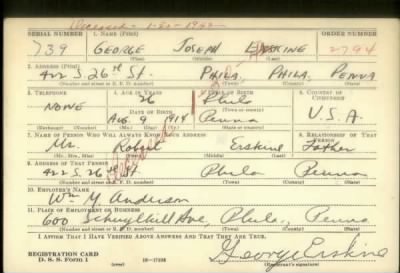 Deceased - 1-20-1942
SERIAL NUMBER 1. NAME (Print) ORDER NUMBER
739 GEORGE JOSEPH ERSKINE 2794
2. ADDRESS (Print)
422 S. 26th St. PHILA. PHILA. PENNA
(Number and street or R. F. D. number) (Town) (County) (State)
3. TELEPHONE 4. AGE IN YEARS 5. PLACE OF BIRTH 6. COUNTRY OF CITIZENSHIP
NONE 26 Phila
DATE OF BIRTH (Town or county)
AUG. 9 1914 Penna U.S.A.
(Exchange) (Number) (Mo.) (Day) (Yr.) (State or country)
7. NAME OF PERSON WHO WILL ALWAYS KNOW YOUR ADDRESS 8. RELATIONSHIP OF THAT PERSON
Mr. Robert Erskine Father
(Mr., Mrs., Miss) (First) (Middle) (Last)
9. ADDRESS OF THAT PERSON
422 S. 26th St. Phila Penna
(Number and street or R. F. D. number) (Town) (County) (State)
10. EMPLOYER'S NAME
Wm M. Anderson
11. PLACE OF EMPLOYMENT OR BUSINESS
600 Schuylkill Ave, Phila., Penna
(Number and street or R. F. D. number) (Town) (County) (State)
I AFFIRM THAT I HAVE VERIFIED ABOVE ANSWERS AND THAT THEY ARE TRUE.
REGISTRATION CARD
D. S. S. Form 1 (over) 16-17105 George Erskine
(Registrant's signature)